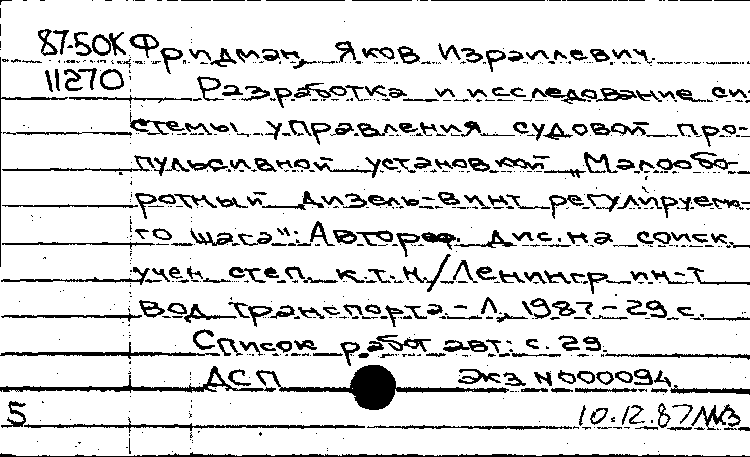 87-50К Фридман, Яков Израилевич
11270 Разработка и исследование си-
стемы управления судовой про-
пульсивной установкой „Малообо-
ротный дизель-винт регулируемо-
го шага": Автореф. дис. на соиск.
учен. степ. к.т.н./Ленингр ин-т
вод. транспорта.-Л, 1987-29 с.
Список работ авт: с. 29.
ДСП экз N000094.
5 10.12.87